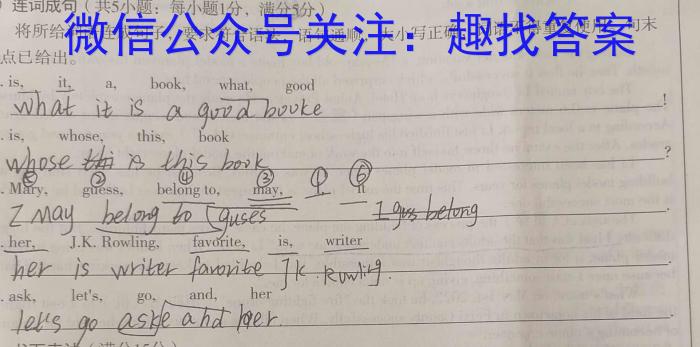 连词成句（共5小题；每小题1分，满分5分）
微信公众号关注：趣找答案
点已给出。
. is, it, a, book, what, good
what it is a good booke !
. is, whose, this, book
whose is this book ?
⑤ ② ④ ③ ① ⑥
. Mary, guess, belong to, may, I, it
I may belong to guses I guss belong .
. her, J.K. Rowling, favorite, is, writer
her is writer favorite Jk Rowling .
. ask, let's, go, and, her
let's go aske and her.